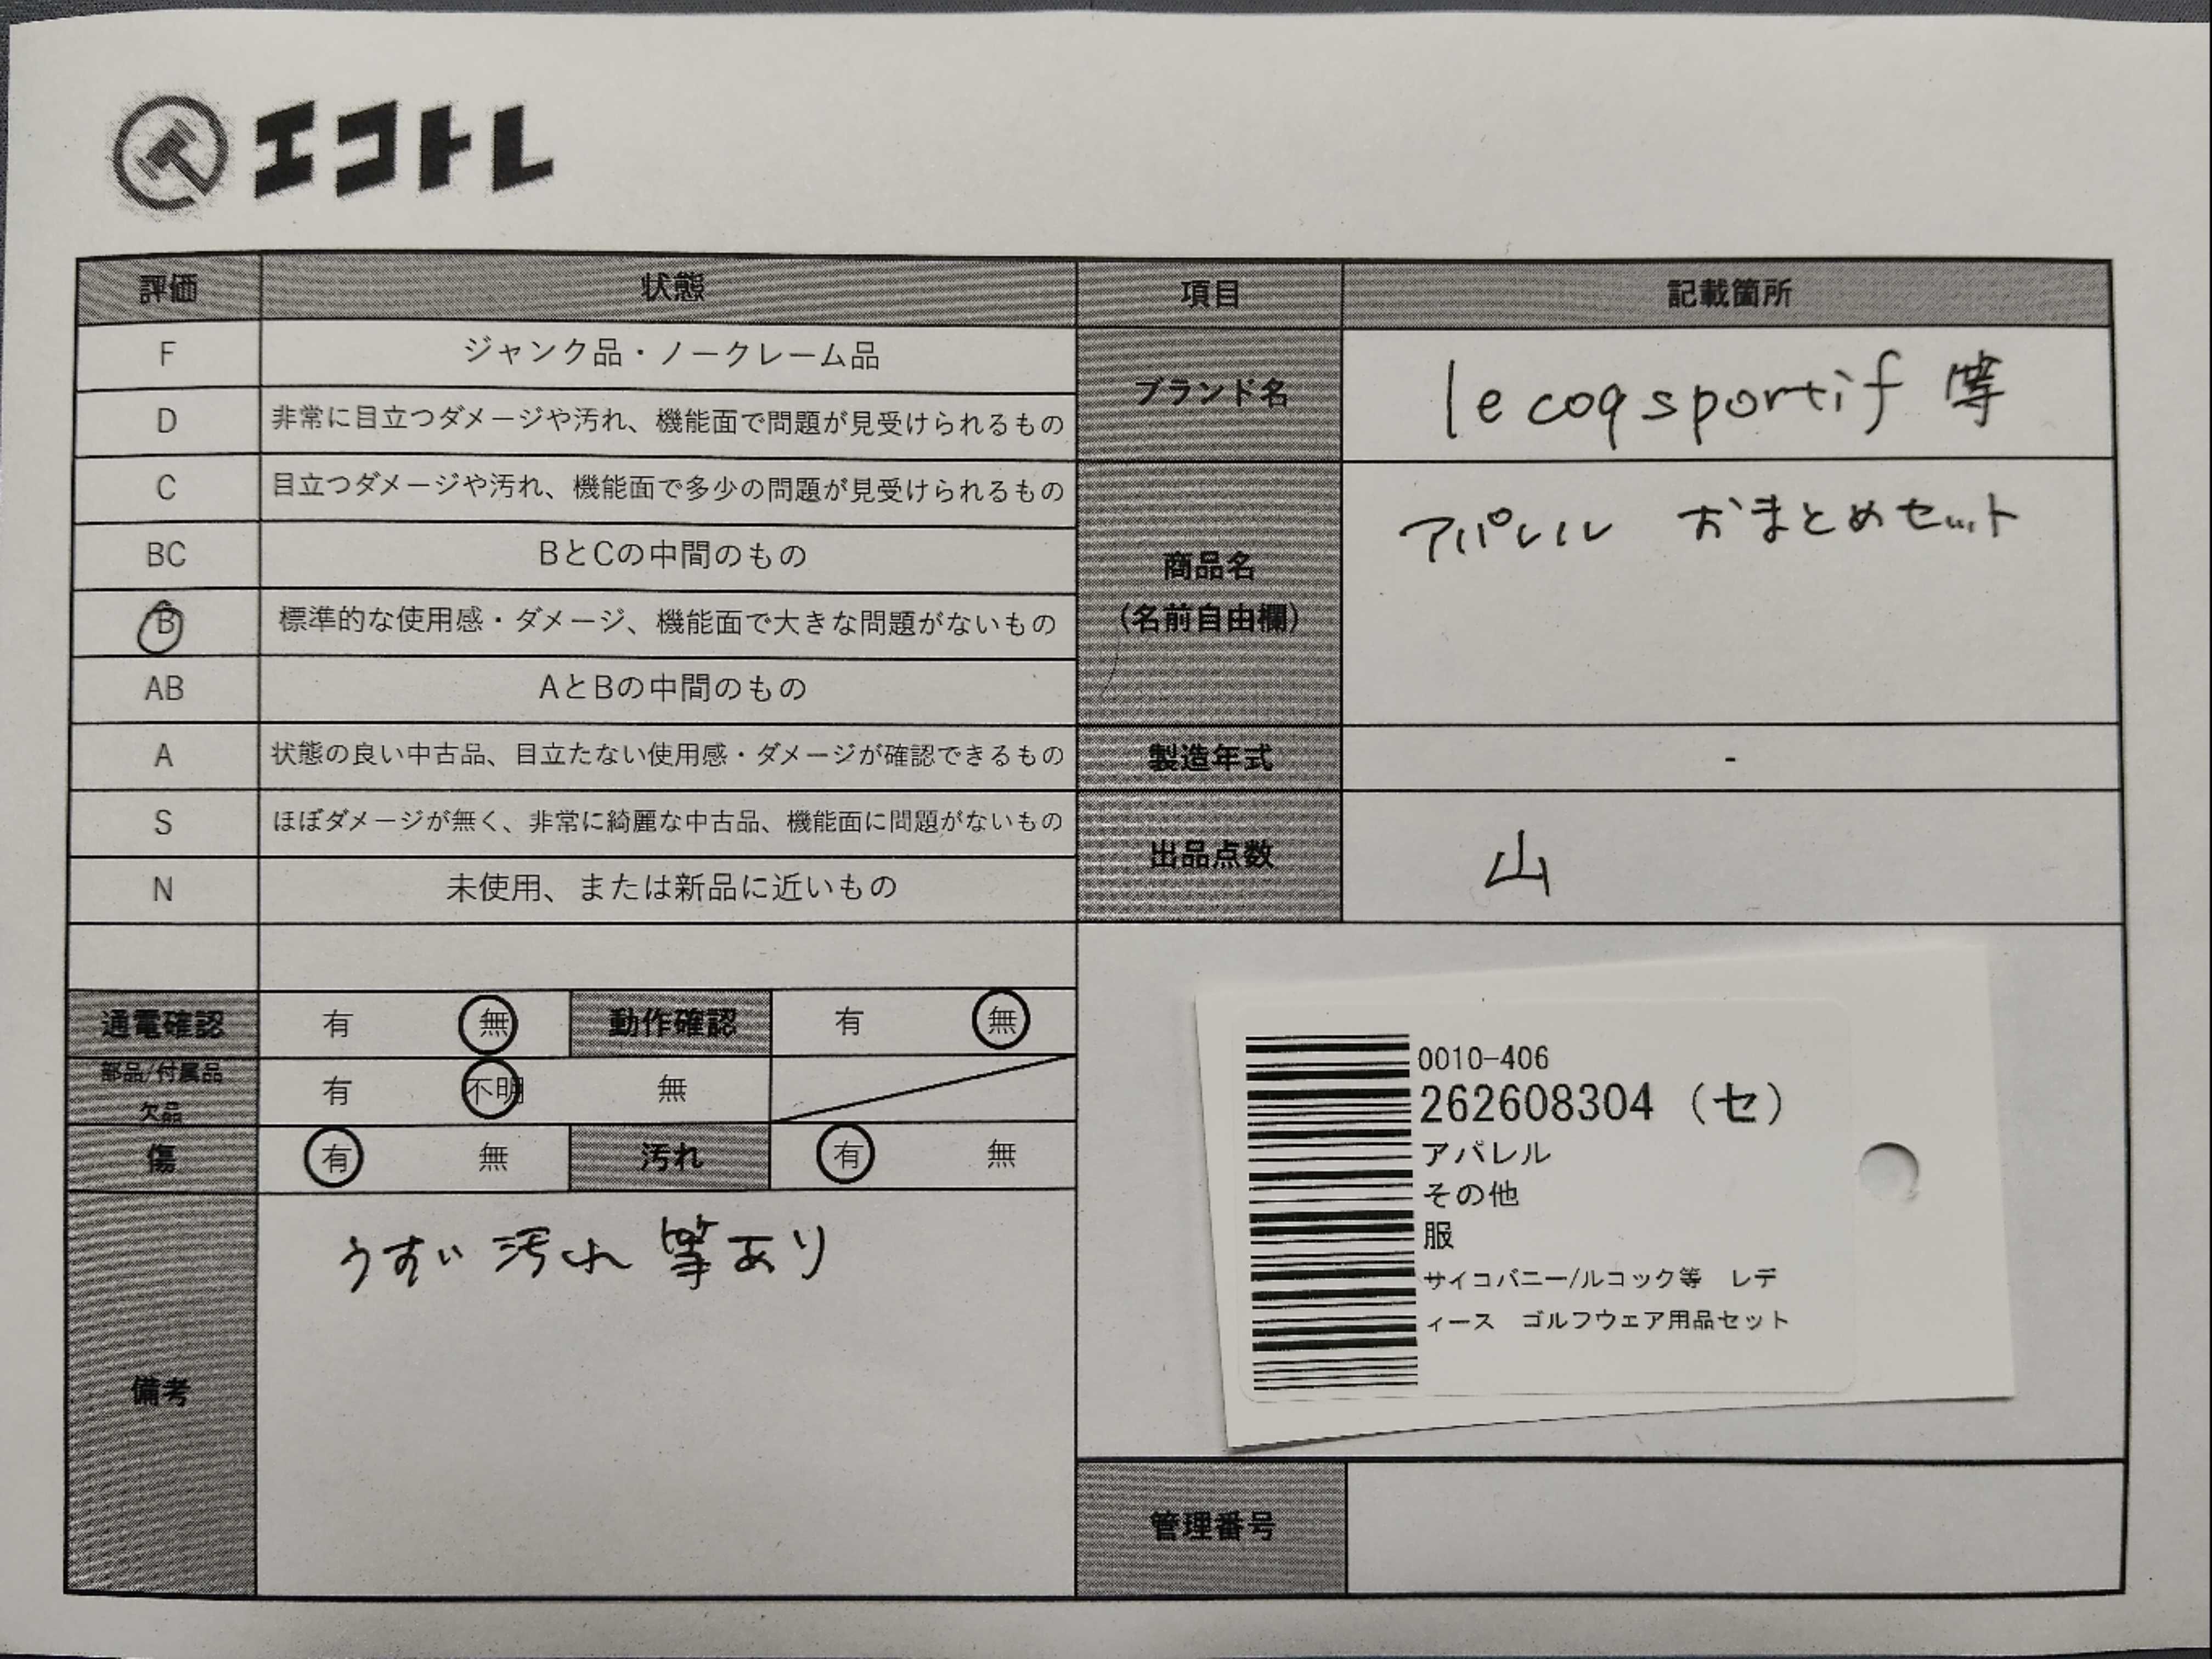 エコトレ
評価 状態 項目 記載箇所
F ジャンク品・ノークレーム品
D 非常に目立つダメージや汚れ、機能面で問題が見受けられるもの
C 目立つダメージや汚れ、機能面で多少の問題が見受けられるもの
BC BとCの中間のもの
B 標準的な使用感・ダメージ、機能面で大きな問題がないもの
AB AとBの中間のもの
A 状態の良い中古品、目立たない使用感・ダメージが確認できるもの
S ほぼダメージが無く、非常に綺麗な中古品、機能面に問題がないもの
N 未使用、または新品に近いもの
ブランド名 le coq sportif 等
商品名
(名前自由欄)
アパレル おまとめセット
製造年式 -
出品点数 山
通電確認 有 無 動作確認 有 無
部品/付属品
欠品
有 不明 無
傷 有 無 汚れ 有 無
備考 うすい汚れ等あり
0010-406
262608304 (セ)
アパレル
その他
服
サイコバニー/ルコック等 レデ
ィース ゴルフウェア用品セット
管理番号